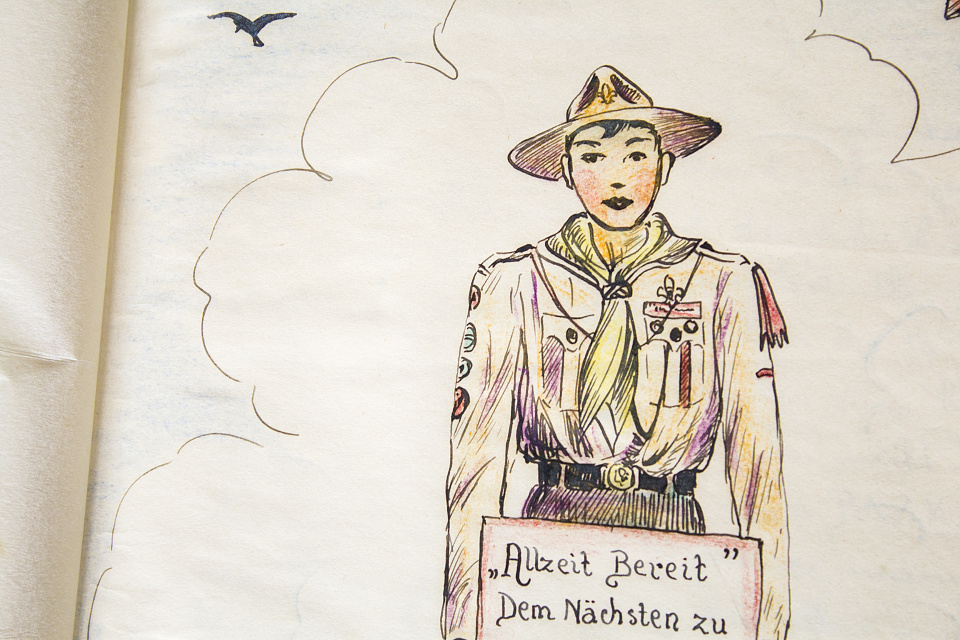 „Allzeit Bereit”
Dem Nächsten zu